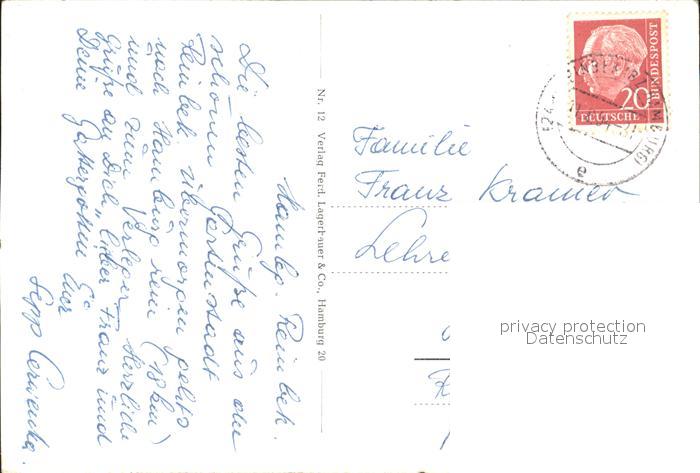 Hambg. Reinbek.
Die besten Grüße aus der
schönen Gartenstadt
Reinbek übermorgen geht's
nach Hamburg rein (18 km)
und zum Verleger. Herzliche
Grüße an Dich, lieber Franz und
Deine
Euer
Sepp
Nr. 12 Verlag Ferd. Lagerbauer & Co., Hamburg 20
DEUTSCHE
BUNDESPOST
20
e
Familie
Franz Kramer
Lehre
privacy protection
Datenschutz